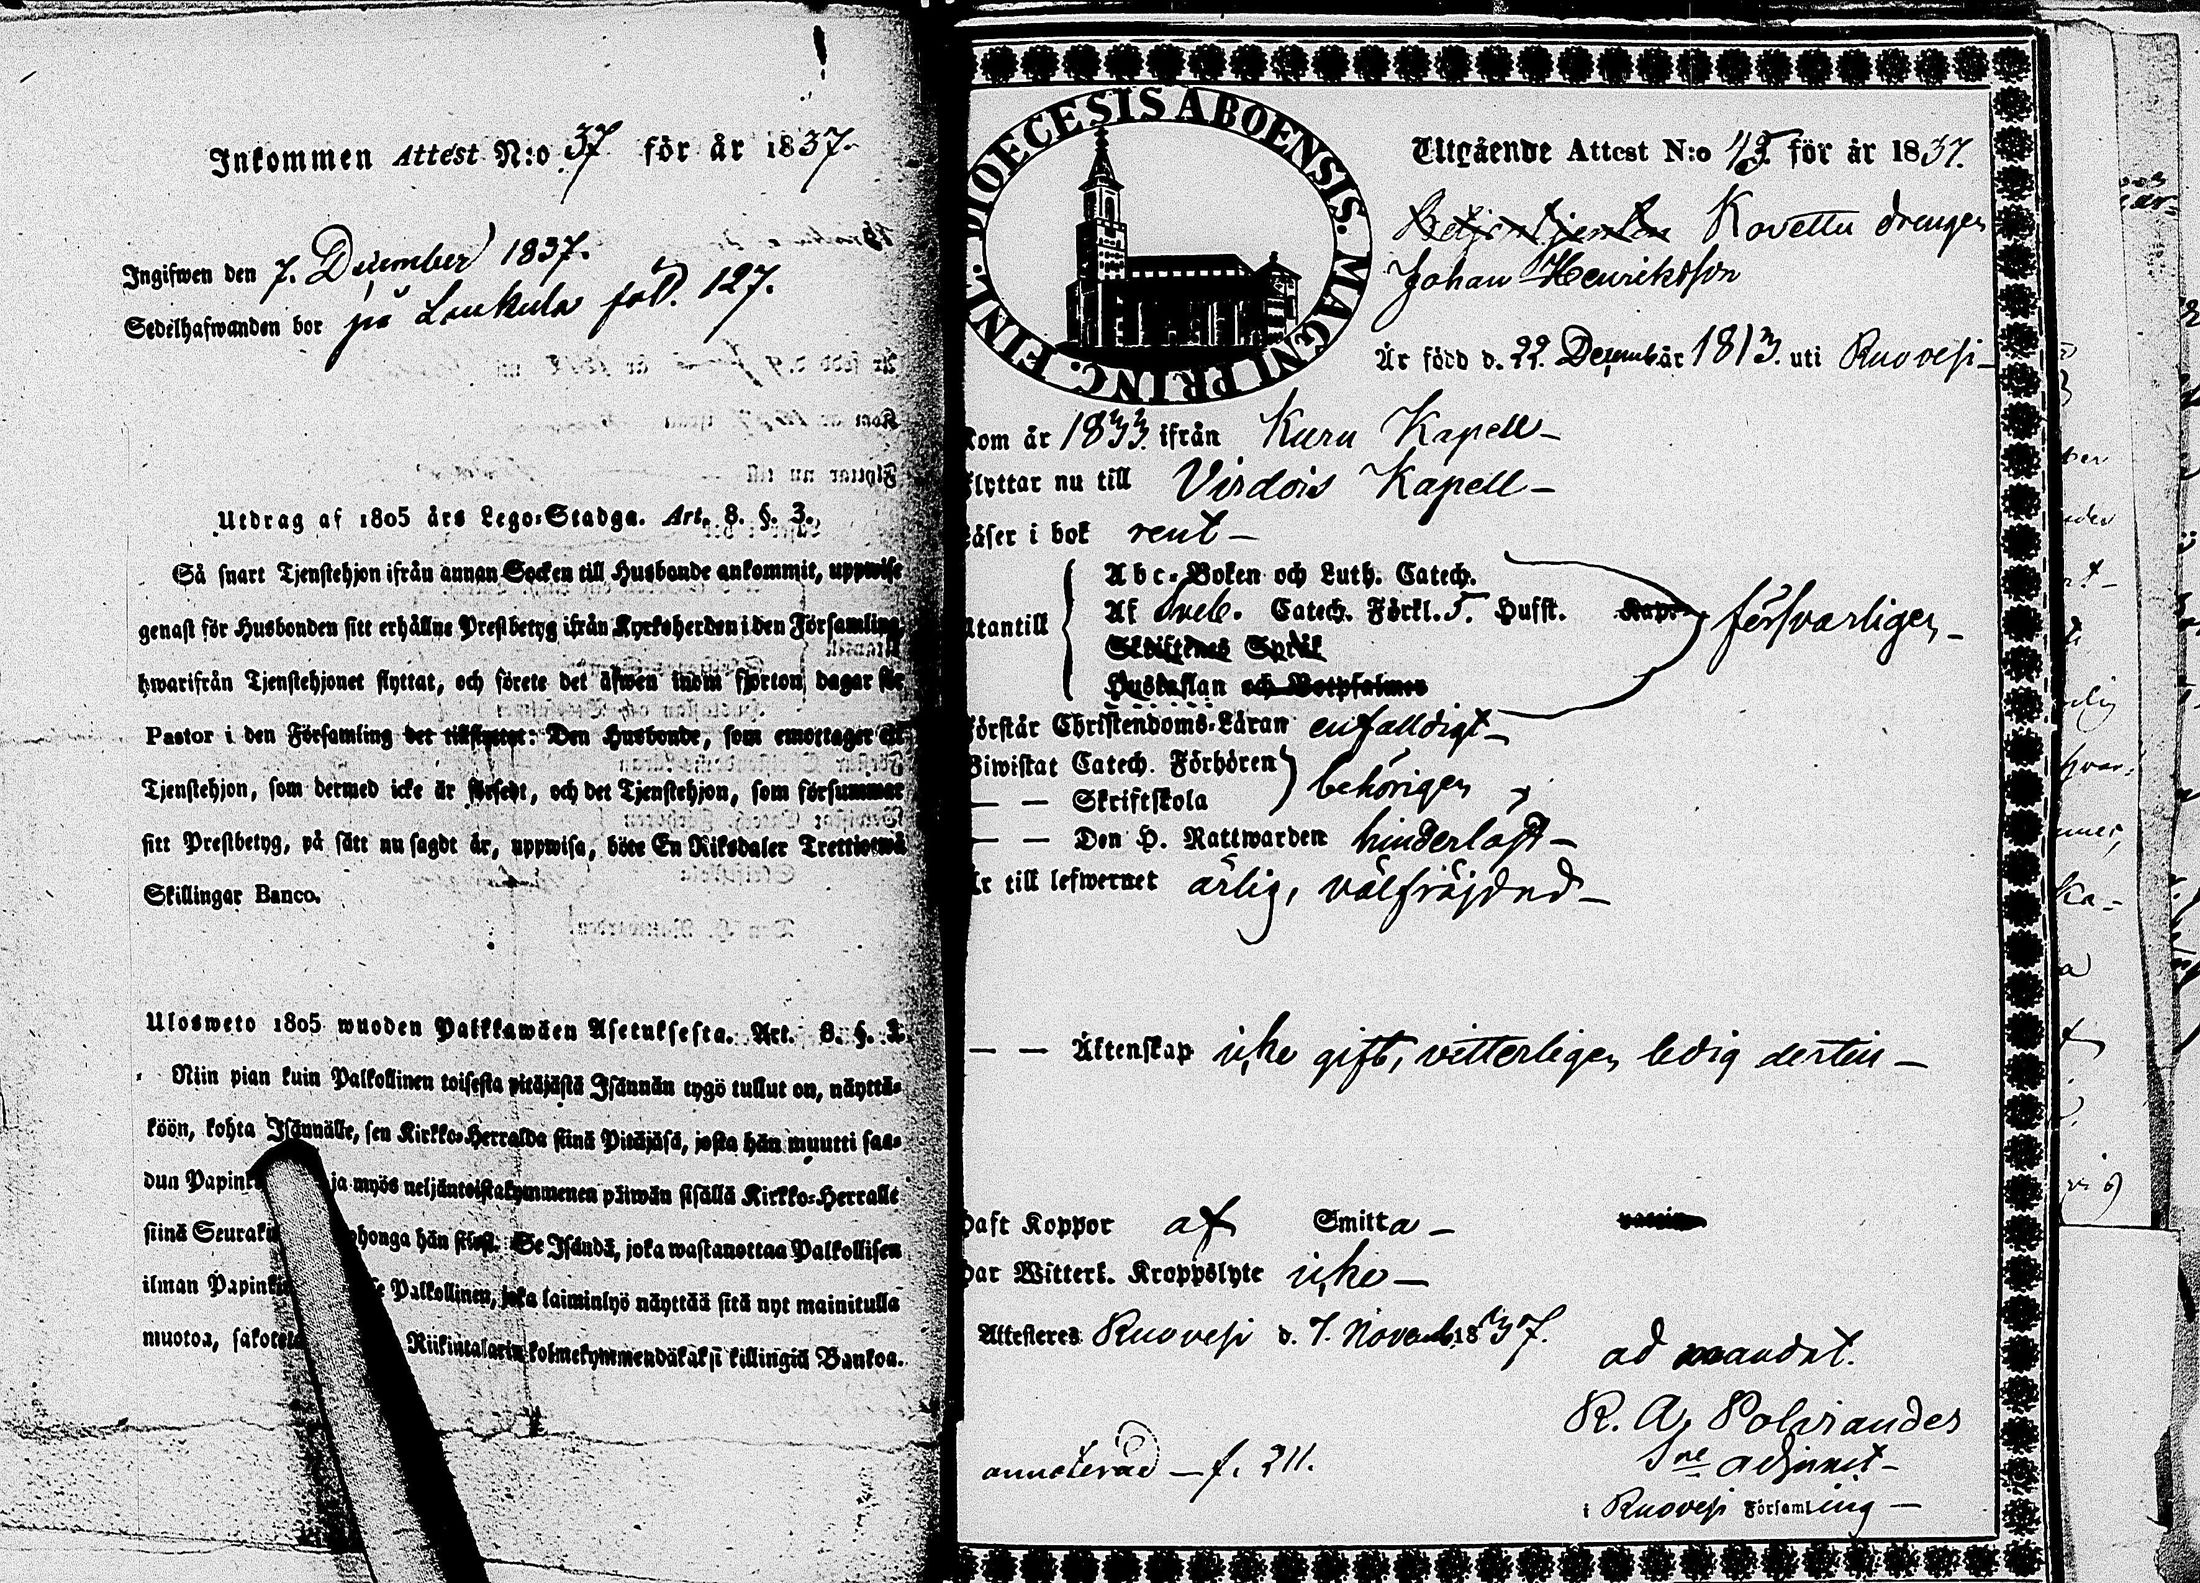 Inkommen Attest N:o 37 för år 1837.
Ingifwen den 7. December 1837.
Sedelhafwanden bor på Leukula fol. 127.
Utdrag af 1805 års Lego-Stadga. Art. 8. §. 3.
Så snart Tjenstehjon ifrån annan Socken till Husbonde ankommit, uppwise
genast för Husbonden sitt erhållne Prestbetyg ifrån Kyrkoherden i den Församling,
hwarifrån Tjenstehjonet flyttat, och förete det äfwen inom fjorton dagar för
Pastor i den Församling det tillflyttat: Den Husbonde, som emottager ett
Tjenstehjon, som dermed icke är försedt, och det Tjenstehjon, som försummar
sitt Prestbetyg, på sätt nu sagdt är, uppwisa, böte En Riksdaler Trettiotwå
Skillingar Banco.
Ulosweto 1805 wuoden Palkkawäen Asetuksesta. Art. 8. §. 3.
Niin pian kuin Palkollinen toisesta pitäjästä Isännän tygö tullut on, näyttä-
köön, kohta Isännälle, sen Kirkko-Herralda siinä Pitäjäsä, josta hän muutti saa-
dun Papink ja myös neljäntoistakymmenen päiwän sisällä Kirkko-Herralle
siinä Seurak honga hän Se Isändä, joka wastanottaa Palkollisen
ilman Papink se Palkollinen, joka laiminlyö näyttää sitä nyt mainitulla
muotoa, sakote Riikintalarin kolmekymmendäkaksi killingiä Bankoa.
DIOECESIS ABOENSIS. MAGNI PRINC. FINL.
Utgående Attest N:o 43. för år 1837.
drengen
Johan Henriksson
Är född d. 22. December år 1813. uti Ruovesi
Kom år 1833. ifrån Kuru Kapell
Flyttar nu till Virdois Kapell
Läser i bok rent
Abc-Boken och Luth. Catech.
Utantill Af Sveb. Catech. Förkl. 5. Hufst. Kap. försvarligen
Skriftenes Språk
Hustaflan och Botpsalmer
Förstår Christendoms-Läran enfalldigt
Biwistat Catech. Förhören behörigen
— — Skriftskola
— — Den H. Nattwarden hinderlöst
Är till lefwernet ärlig, välfräjdad
— — Äktenskap icke gift, vitterligen ledig dertill
Haft Koppor af Smitta
Har Witterl. Kroppslyte icke
Attesteres Ruovesi d. 7. Novemb. 1837.
ad mandat.
R. A. Polviander
adjunct
annoterad f. 211.
i Ruovesi Församling